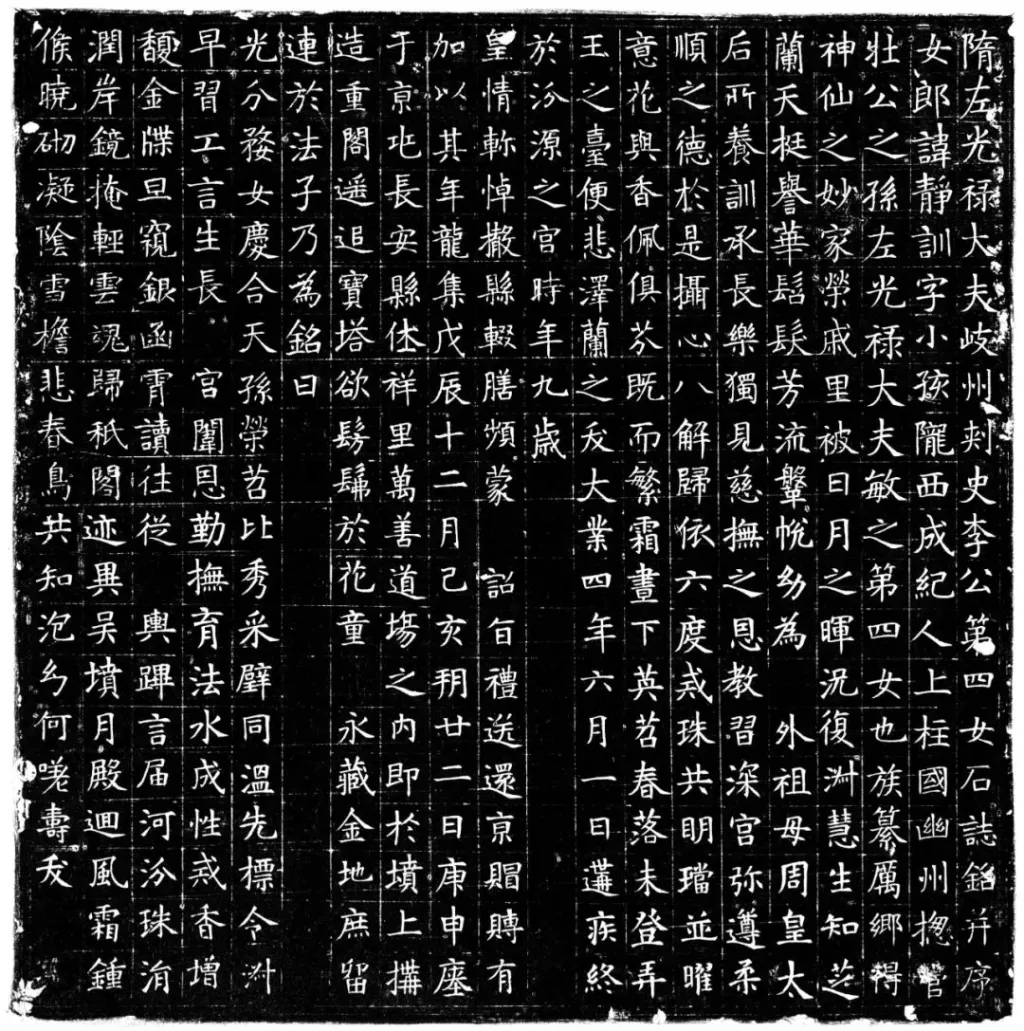 隋左光禄大夫岐州刾史李公第四女石誌銘并序
女郎諱靜訓字小孩隴西成紀人上柱國幽州揔管
壮公之孫左光禄大夫敏之第四女也族纂厲鄉得
神仙之妙家榮戚里被日月之暉況復淑慧生知芝
蘭天挺譽華髫髮芳流鞶帨幼為 外祖母周皇太
后所養訓承長樂獨見慈撫之恩教習深宮弥遵柔
順之德於是攝心八解歸依六度戒珠共明璫並曜
意花與香佩俱芬既而繁霜晝下英苕春落未登弄
玉之臺便悲澤蘭之夭大業四年六月一日遘疾終
於汾源之宮時年九歲
皇情軫悼撤縣輟膳頻蒙 詔旨禮送還京賵賻有
加以其年龍集戊辰十二月己亥朔廿二日庚申塟
于京兆長安縣休祥里萬善道場之内即於墳上搆
造重閣遥追寶塔欲髣髴於花童 永藏金地庶留
連於法子乃為銘曰
光分婺女慶合天孫榮苕比秀采璧同溫先標令淑
早習工言生長 宮闈恩勤撫育法水成性戒香增
馥金牒旦窺銀函霄讀往從 輿蹕言届河汾珠涓
潤岸鏡掩輕雲魂歸秖閣迹異吴墳月殿迴風霜鍾
候曉砌凝陰雪檐悲春鳥共知泡幻何嗟壽夭